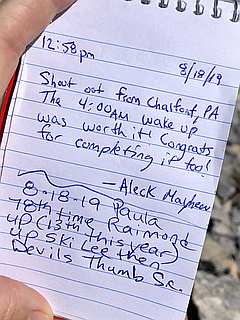 12:58pm
8/18/19
Shout out from Chalfont, PA
The 4:00AM wake up
was worth it! Congrats
for completing it too!
—Aleck
8-18-19 Paula
78th time, Raimond
up (13th this year)
up Ski Lee then
Devils Thumb Sc.